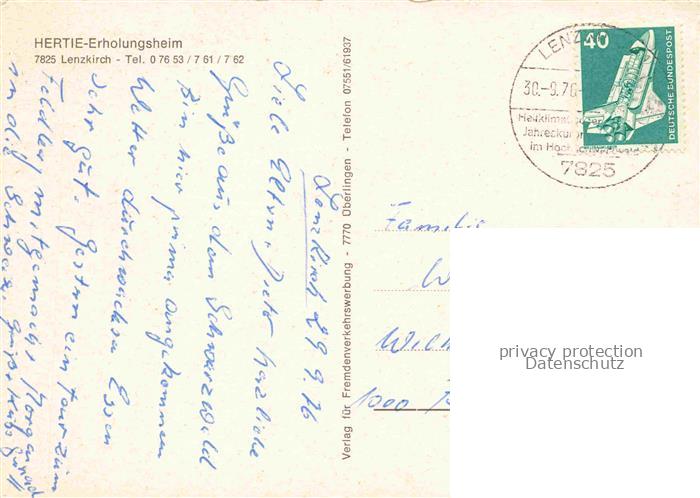 HERTIE-Erholungsheim
7825 Lenzkirch - Tel. 0 76 53 / 7 61 / 7 62
Lenzkirch 29.9.76
Liebe Eltern, Dieter herzliche
Grüße aus dem Schwarzwald
Bin hier prima angekommen
Wetter durchwachsen Essen
sehr gut. Gestern eine Tour zum
Feldberg mitgemacht Morgen
in die Schweiz.
Verlag für Fremdenverkehrswerbung - 7770 Überlingen - Telefon 07551/61937
LENZ
30.-9.76
Heilklimatischer
Jahreskuror
im Hoch
7825
40
DEUTSCHE BUNDESPOST
Familie
W
1000
privacy protection
Datenschutz